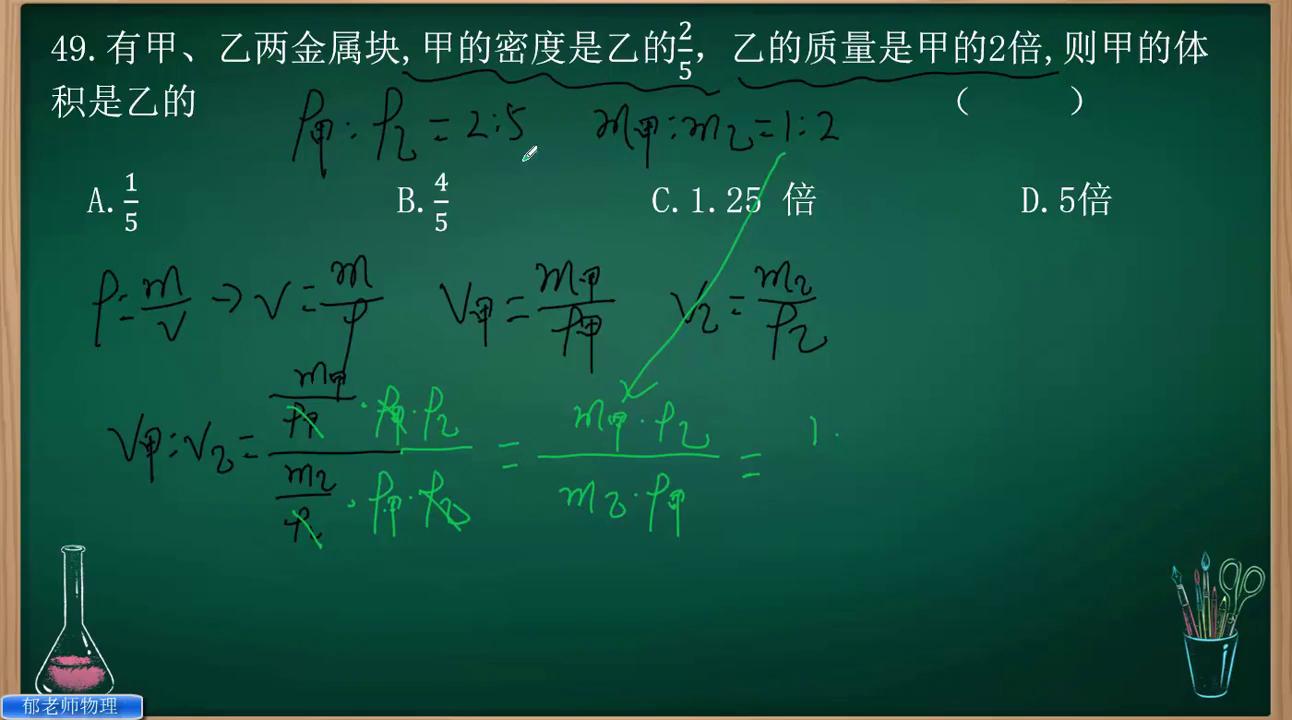 49.有甲、乙两金属块,甲的密度是乙的2/5，乙的质量是甲的2倍,则甲的体
积是乙的 （ ）
ρ甲:ρ乙=2:5 m甲:m乙=1:2
A.1/5 B.4/5 C.1.25 倍 D.5倍
ρ=m/v→v=m/ρ V甲=m甲/ρ甲 V乙=m乙/ρ乙
V甲:V乙=(m甲/ρ甲·ρ甲·ρ乙)/(m乙/ρ乙·ρ甲·ρ乙)=(m甲·ρ乙)/(m乙·ρ甲)=1·
郁老师物理